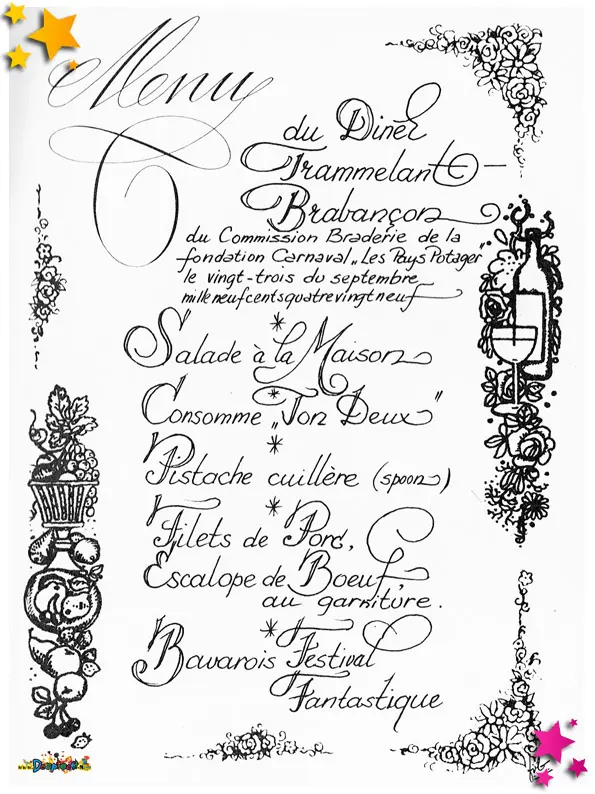 Menu
du Dinér
Trammelant-
Brabançon
du Commission Braderie de la
fondation Carnaval „Les Pays Potager"
le vingt-trois du septembre
mille neuf cents quatre vingt neuf
*
Salade à la Maison
*
Consomme „Ton Deux"
*
Pistache cuillère (spoon)
*
Filets de Porc,
Escalope de Boeuf,
au garniture.
*
Bavarois Festival
Fantastique